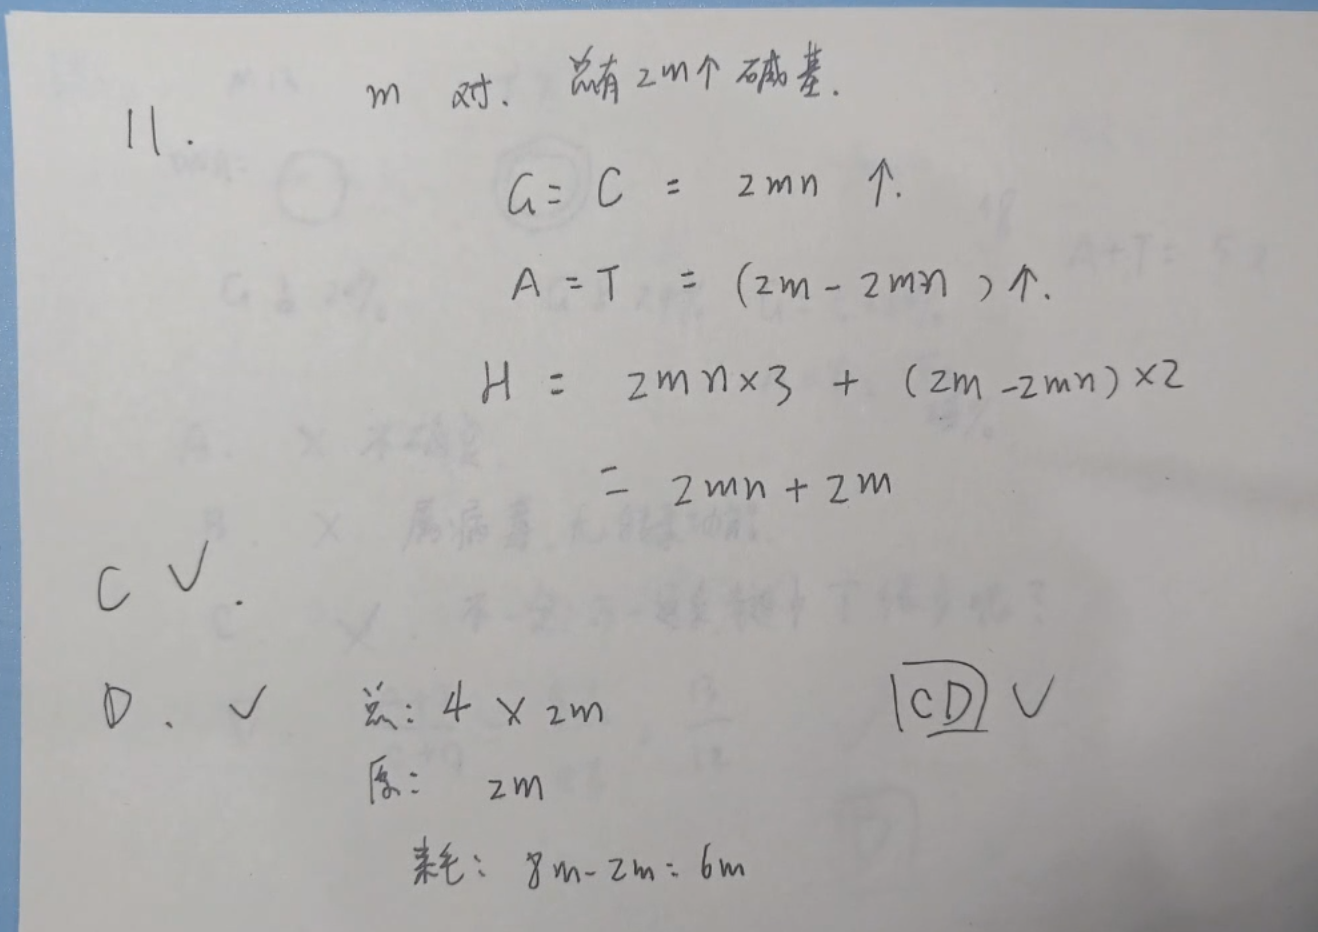 11.
m 对. 总有2m个碱基.
G = C = 2mn 个.
A = T = (2m - 2mn)个.
H = 2mn×3 + (2m - 2mn)×2
= 2mn + 2m
C √.
D. √ 总: 4 × 2m
CD √
原: 2m
耗: 8m - 2m = 6m